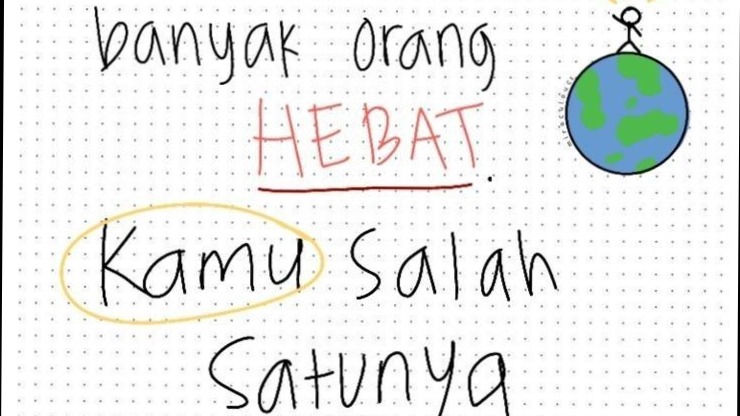 banyak orang
HEBAT.
Kamu salah
satunya